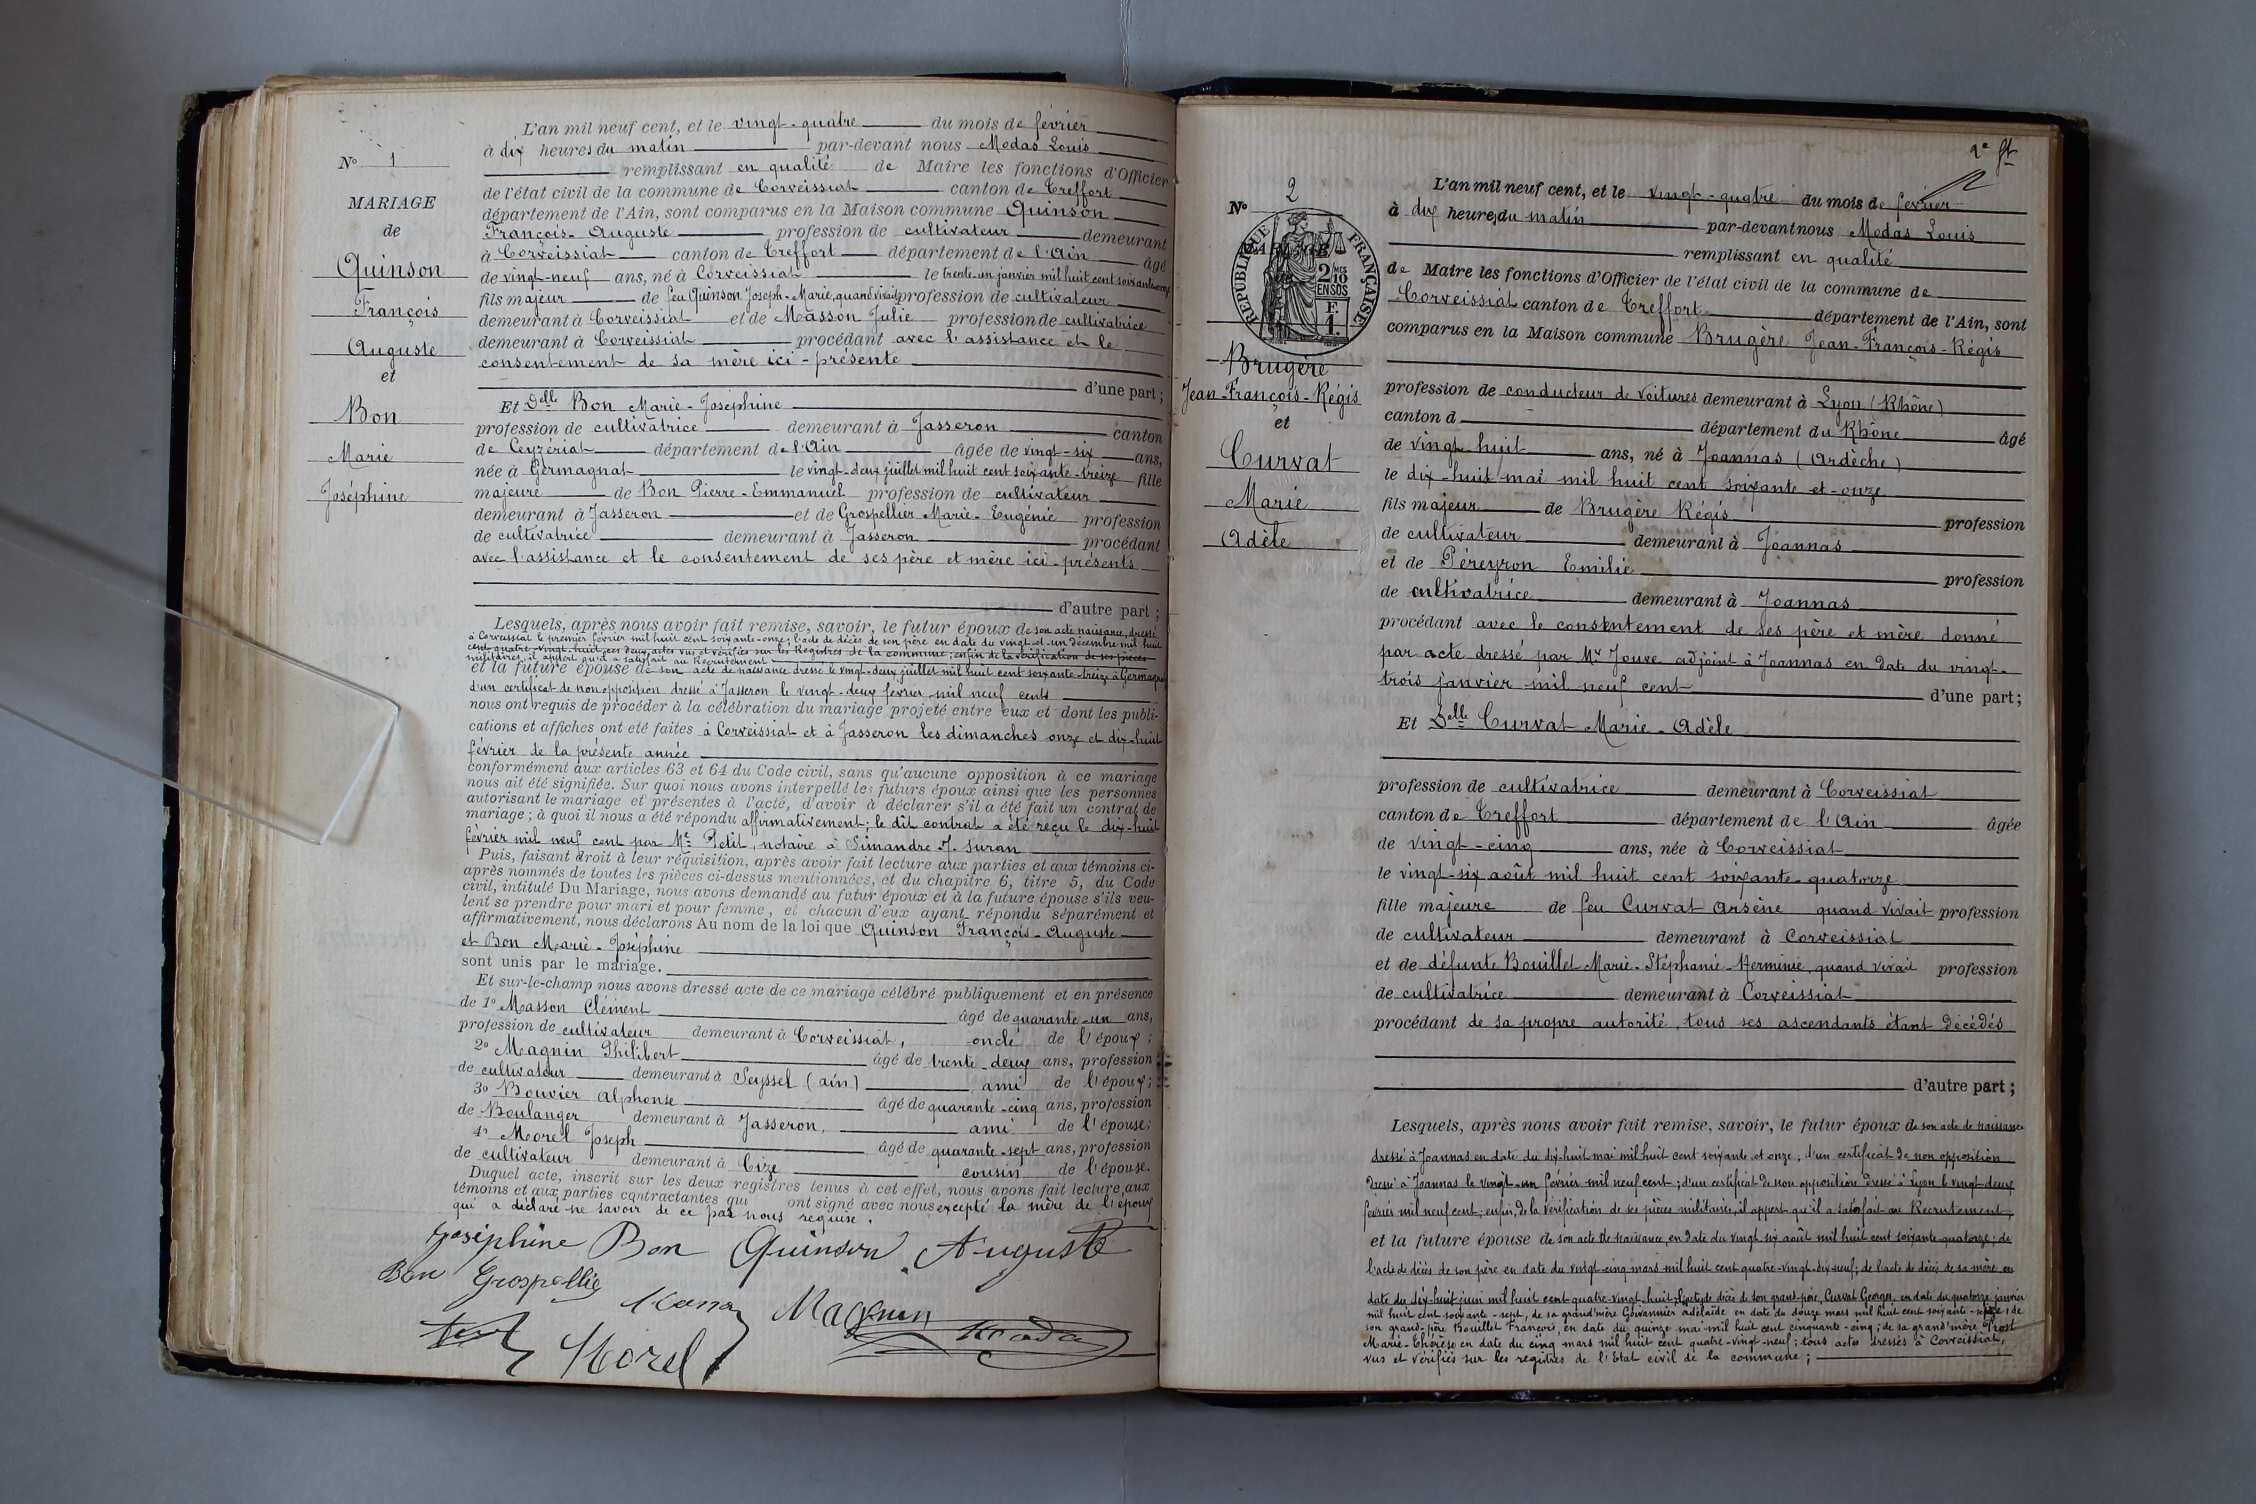 L'an mil neuf cent, et le vingt-quatre du mois de février
à dix heures du matin par-devant nous Modas Louis
remplissant en qualité de Maire les fonctions d'Officier
de l'état civil de la commune de Corveissiat canton de Treffort
département de l'Ain, sont comparus en la Maison commune Quinson
François-Auguste profession de cultivateur demeurant
à Corveissiat canton de Treffort département de l'Ain âgé
de vingt-neuf ans, né à Corveissiat le trente-un janvier mil huit cent soixante-onze
fils majeur de feu Quinson Joseph-Marie, quand vivait profession de cultivateur
demeurant à Corveissiat et de Masson Julie profession de cultivatrice
demeurant à Corveissiat procédant avec l'assistance et le
consentement de sa mère ici-présente
d'une part;
Et Delle Bon Marie-Joséphine
profession de cultivatrice demeurant à Jasseron canton
de Ceyzériat département de l'Ain âgée de vingt-six ans,
née à Germagnat le vingt-deux juillet mil huit cent soixante-treize fille
majeure de Bon Pierre-Emmanuel profession de cultivateur
demeurant à Jasseron et de Grospellier Marie-Eugénie profession
de cultivatrice demeurant à Jasseron procédant
avec l'assistance et le consentement de ses père et mère ici-présents
d'autre part;
Lesquels, après nous avoir fait remise, savoir, le futur époux de son acte naissance, dressé
à Corveissiat le premier février mil huit cent soixante-onze; l'acte de décès de son père en date du vingt-et-un décembre mil huit
cent quatre-vingt-huit, ces deux actes vus et vérifiés sur les Registres de la commune; enfin de la vérification de ses pièces
militaires, il appert qu'il a satisfait au Recrutement
et la future épouse de son acte de naissance dressé le vingt-deux juillet mil huit cent soixante-treize à Germagnat
d'un certificat de non opposition dressé à Jasseron le vingt-deux février mil neuf cents
nous ont requis de procéder à la célébration du mariage projeté entre eux et dont les publi-
cations et affiches ont eté faites à Corveissiat et à Jasseron les dimanches onze et dix-huit
février de la présente année
conformément aux articles 63 et 64 du Code civil, sans qu'aucune opposition à ce mariage
nous ait été signifiée. Sur quoi nous avons interpellé les futurs époux ainsi que les personnes
autorisant le mariage et présentes à l'acte, d'avoir à déclarer s'il a été fait un contrat de
mariage; à quoi il nous a été répondu affirmativement; le dit contrat a été reçu le dix-huit
février mil neuf cent par Me Petit, notaire à Simandre s. Suran
Puis, faisant droit à leur réquisition, après avoir fait lecture aux parties et aux témoins ci-
après nommés de toutes les pièces ci-dessus mentionnées, et du chapitre 6, titre 5, du Code
civil, intitulé Du Mariage, nous avons demandé au futur époux et à la future épouse s'ils veu-
lent se prendre pour mari et pour femme, et chacun d'eux ayant répondu séparément et
affirmativement, nous déclarons Au nom de la loi que Quinson François-Auguste
et Bon Marie-Joséphine
sont unis par le mariage.
Et sur-le-champ nous avons dressé acte de ce mariage célébré publiquement et en présence
de 1° Masson Clément âgé de quarante-un ans,
profession de cultivateur demeurant à Corveissiat, oncle de l'époux;
2° Magnin Philibert âgé de trente-deux ans, profession
de cultivateur demeurant à Seyssel (ain) ami de l'époux;
3° Bouvier Alphonse âgé de quarante-cinq ans, profession
de Boulanger demeurant à Jasseron, ami de l'épouse;
4° Morel Joseph âgé de quarante-sept ans, profession
de cultivateur demeurant à Cize cousin de l'épouse.
Duquel acte, inscrit sur les deux registres tenus à cet effet, nous avons fait lecture aux
témoins et aux parties contractantes qui ont signé avec nous excepté la mère de l'époux
qui a déclaré ne savoir de ce par nous requise.
Joséphine Bon Quinson Auguste
Bon Grospellie Magnin
Morel
N° 1
MARIAGE
de
Quinson
François
Auguste
et
Bon
Marie
Joséphine
N° 2
REPUBLIQUE FRANÇAISE
2/10 MES
EN SUS
F.
1.
Brugère
Jean-François-Régis
et
Curvat
Marie
Adèle
L'an mil neuf cent, et le vingt-quatre du mois de février
à dix heures du matin par-devant nous Modas Louis
remplissant en qualité
de Maire les fonctions d'Officier de l'état civil de la commune de
Corveissiat canton de Treffort département de l'Ain, sont
comparus en la Maison commune Brugère Jean-François-Régis
profession de conducteur de voitures demeurant à Lyon (Rhône)
canton d département du Rhône âgé
de vingt-huit ans, né à Joannas (Ardèche)
le dix-huit mai mil huit cent soixante-et-onze
fils majeur de Brugère Régis profession
de cultivateur demeurant à Joannas
et de Péreyron Emilie profession
de cultivatrice demeurant à Joannas
procédant avec le consentement de ses père et mère donné
par acte dressé par Mr Jouve adjoint à Joannas en date du vingt-
trois janvier mil neuf cent d'une part;
Et Delle Curvat Marie-Adèle
profession de cultivatrice demeurant à Corveissiat
canton de Treffort département de l'Ain âgée
de vingt-cinq ans, née à Corveissiat
le vingt-six août mil huit cent soixante-quatorze
fille majeure de feu Curvat Arsène quand vivait profession
de cultivateur demeurant à Corveissiat
et de défunte Bouillet Marie-Stéphanie-Herminie, quand vivait profession
de cultivatrice demeurant à Corveissiat
procédant de sa propre autorité, tous ses ascendants étant décédés
d'autre part;
Lesquels, après nous avoir fait remise, savoir, le futur époux de son acte de naissance
dressé à Joannas en date du dix-huit mai mil huit cent soixante et onze; d'un certificat de non opposition
dressé à Joannas le vingt-un février mil neuf cent; d'un certificat de non opposition dressé à Lyon le vingt-deux
février mil neuf cent; enfin, de la vérification de ses pièces militaires, il appert qu'il a satisfait au Recrutement,
et la future épouse de son acte de naissance, en date du vingt six août mil huit cent soixante-quatorze; de
l'acte de décès de son père en date du vingt-cinq mars mil huit cent quatre-vingt-dix-neuf; de l'acte de décès de sa mère en
date du dix-huit juin mil huit cent-quatre-vingt-huit; l'acte de décès de son grand-père, Curvat Georges, en date du quatorze janvier
mil huit cent soixante-sept, de sa grand'mère adélaïde en date du douze mars mil huit cent soixante-; de
son grand-père Bouillet François, en date du quinze mai mil huit cent cinquante-cinq; de sa grand'mère Prost
Marie-Thérèse en date du cinq mars mil huit cent quatre-vingt-neuf; tous actes dressés à Corveissiat,
vus et vérifiés sur les registres de l'Etat civil de la commune;